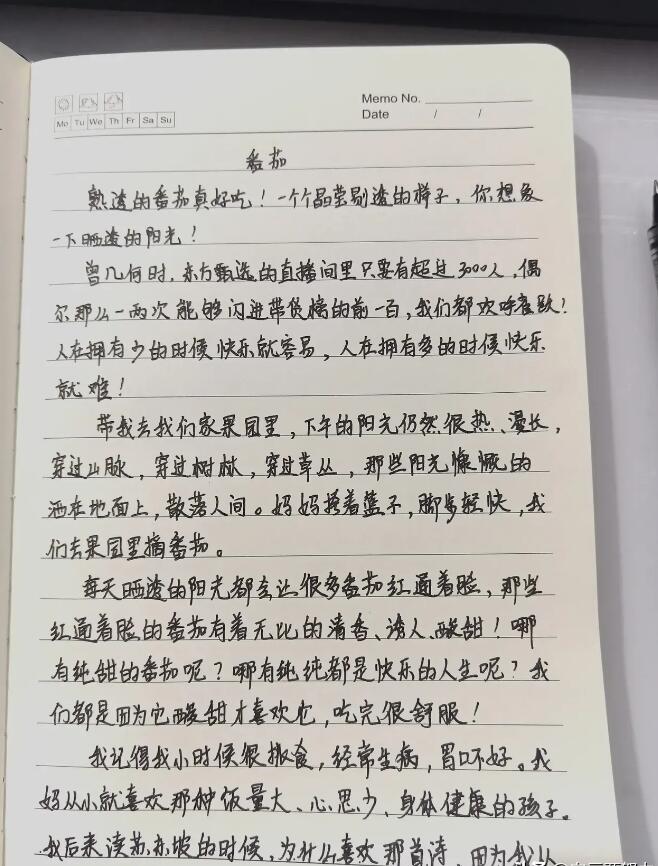 Memo No.
Mo Tu We Th Fr Sa Su
Date / /
番茄
熟透的番茄真好吃！一个个晶莹剔透的样子，你想象
一下晒透的阳光！
曾几何时，东方甄选的直播间里只要有超过3000人，偶
尔那么一两次能够闪进带货榜的前一百，我们都欢呼雀跃！
人在拥有少的时候快乐就容易，人在拥有多的时候快乐
就难！
带我去我们家果园里，下午的阳光仍然很热、漫长，
穿过山脉，穿过树林，穿过草丛，那些阳光慷慨的
洒在地面上，散落人间。妈妈挎着篮子，脚步轻快，我
们去果园里摘番茄。
每天晒透的阳光都会让很多番茄红通着脸，那些
红通着脸的番茄有着无比的清香、诱人、酸甜！哪
有纯甜的番茄呢？哪有纯纯都是快乐的人生呢？我
们都是因为它酸甜才喜欢它，吃完很舒服！
我记得我小时候很挑食，经常生病，胃口不好。我
妈从小就喜欢那种饭量大、心思少、身体健康的孩子。
我后来读苏东坡的时候，为什么喜欢那首诗，因为我从